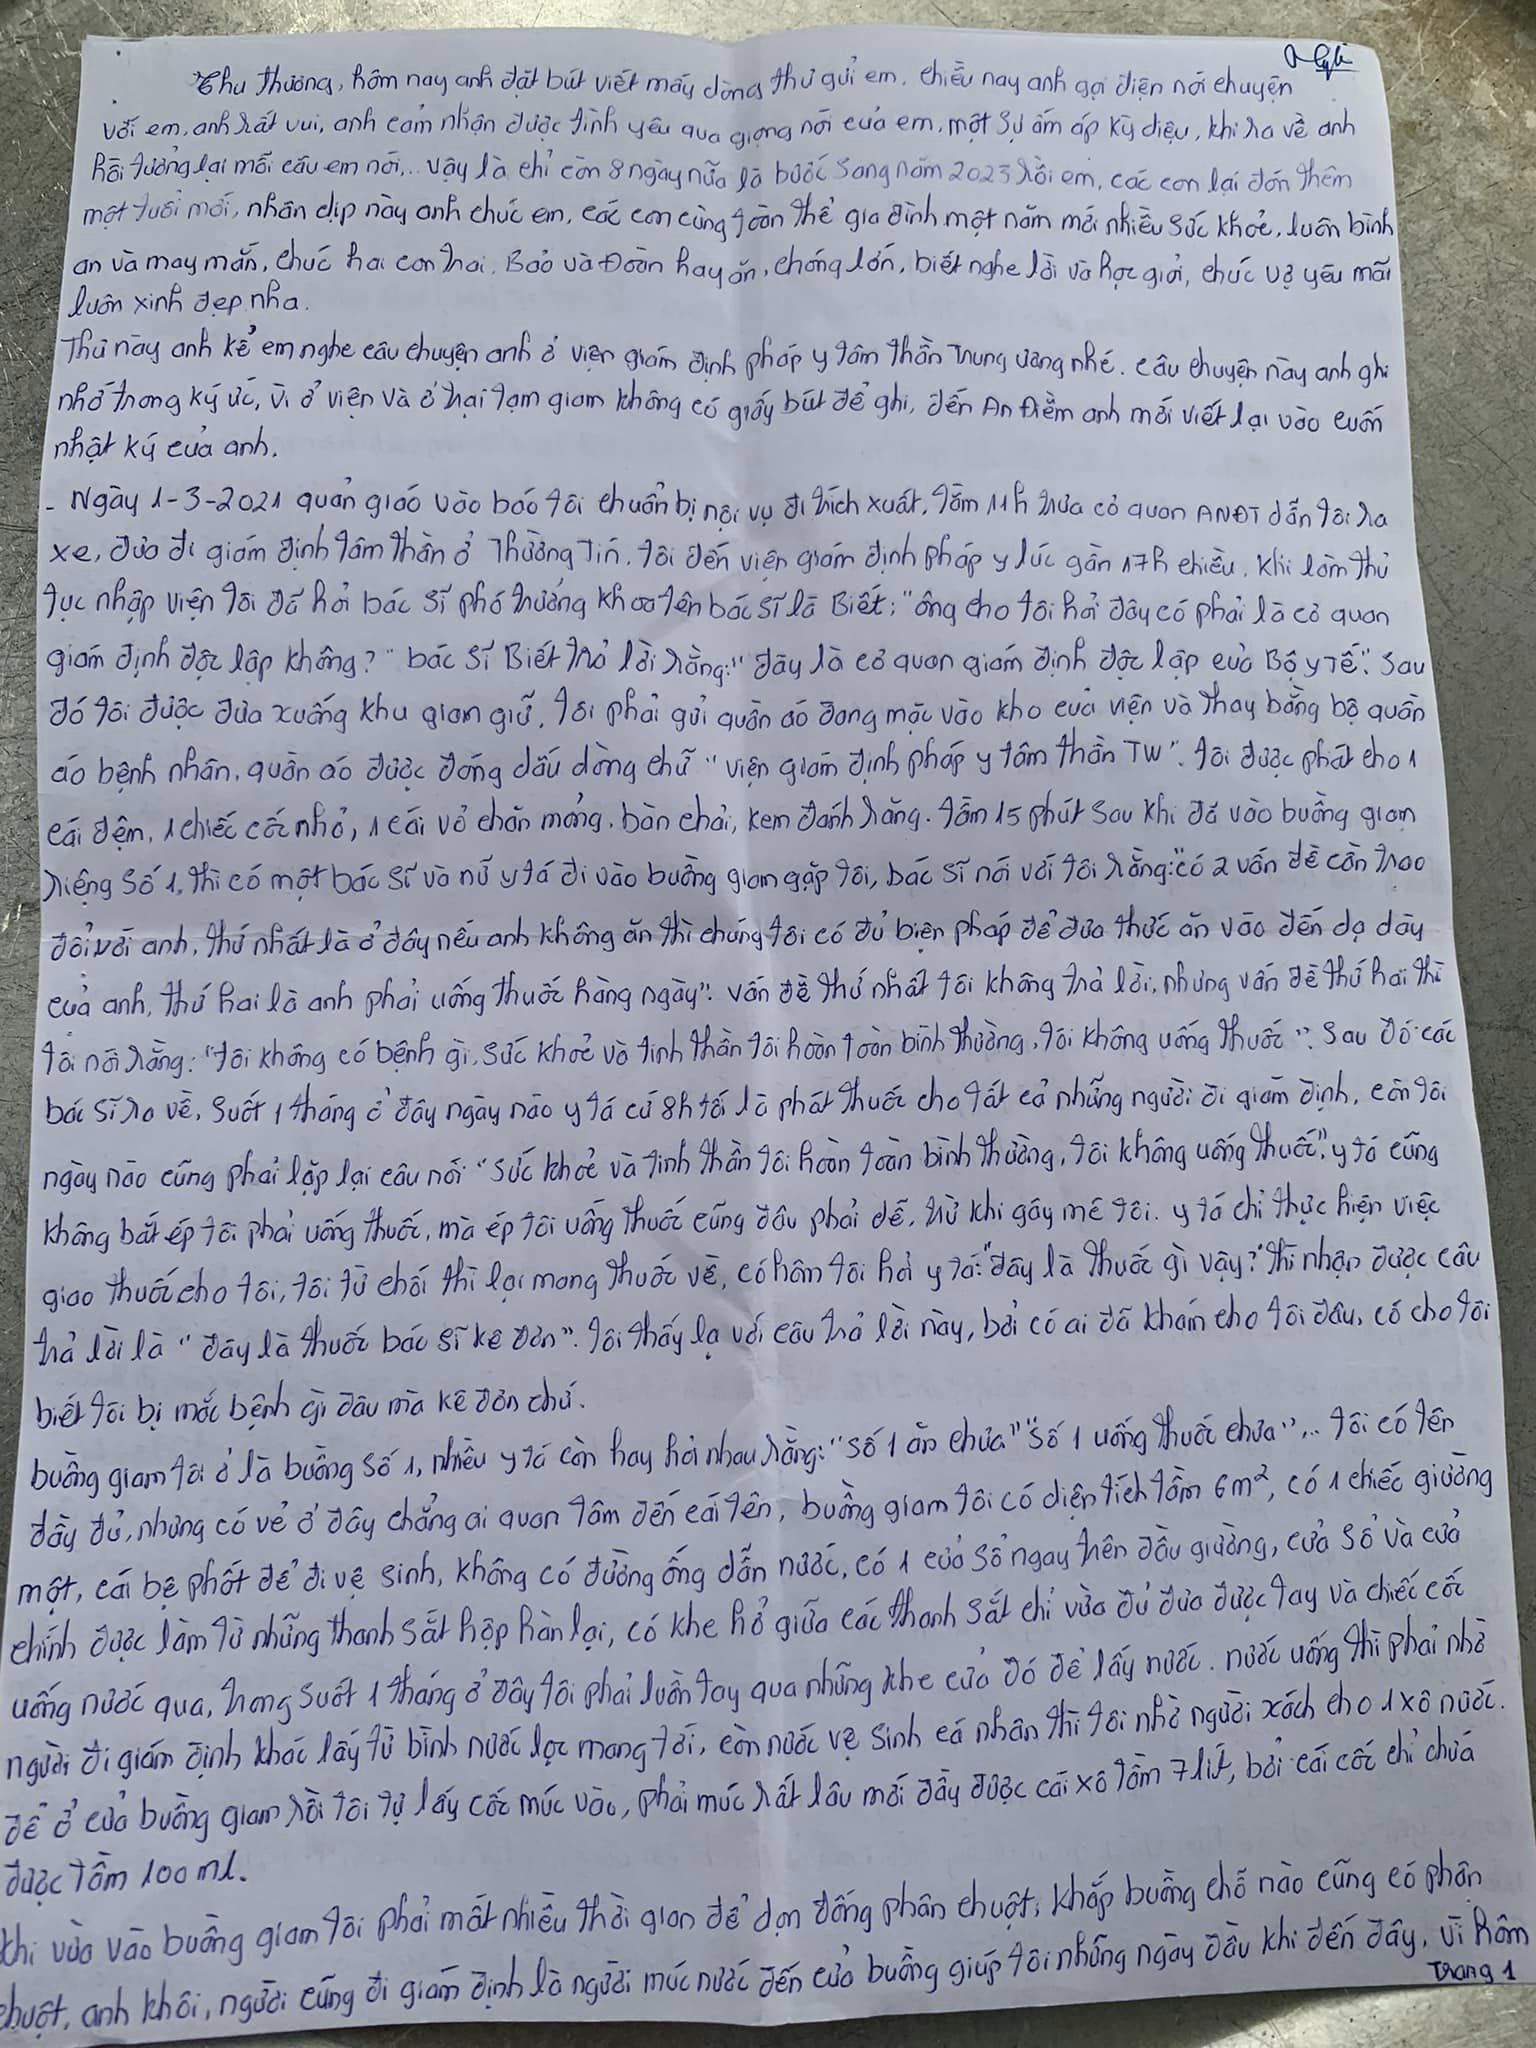 Thu thương, hôm nay anh đặt bút viết mấy dòng thư gửi em. Chiều nay anh gọi điện nói chuyện
với em, anh rất vui, anh cảm nhận được tình yêu qua giọng nói của em, một sự ấm áp kỳ diệu, khi ra về anh
hồi tưởng lại mỗi câu em nói... vậy là chỉ còn 8 ngày nữa là bước sang năm 2023 rồi em, các con lại đón thêm
một tuổi mới, nhân dịp này anh chúc em, các con cùng toàn thể gia đình một năm mới nhiều sức khoẻ, luôn bình
an và may mắn, chúc hai con trai, Bảo và Đoàn hay ăn, chóng lớn, biết nghe lời và học giỏi, chúc vợ yêu mãi
luôn xinh đẹp nha.
Thư này anh kể em nghe câu chuyện anh ở viện giám định pháp y tâm thần Trung ương nhé. câu chuyện này anh ghi
nhớ trong ký ức, vì ở viện và ở trại tạm giam không có giấy bút để ghi, đến An Điềm anh mới viết lại vào cuốn
nhật ký của anh.
- Ngày 1-3-2021 quản giáo vào báo tôi chuẩn bị nội vụ đi trích xuất, tầm 11h trưa cơ quan ANĐT dẫn tôi ra
xe, đưa đi giám định tâm thần ở Thường Tín. tôi đến viện giám định pháp y lúc gần 17h chiều. Khi làm thủ
tục nhập viện tôi đã hỏi bác sĩ phó trưởng khoa tên bác sĩ là Biết: "ông cho tôi hỏi đây có phải là cơ quan
giám định độc lập không?" bác sĩ Biết trả lời rằng: "đây là cơ quan giám định độc lập của Bộ y Tế". Sau
đó tôi được đưa xuống khu giam giữ, tôi phải gửi quần áo đang mặc vào kho của viện và thay bằng bộ quần
áo bệnh nhân, quần áo được đóng dấu dòng chữ "viện giám định pháp y tâm thần TW". tôi được phát cho 1
cái đệm, 1 chiếc cốc nhỏ, 1 cái vỏ chăn mỏng, bàn chải, kem đánh răng. tầm 15 phút sau khi đã vào buồng giam
riêng số 1, thì có một bác sĩ và nữ y tá đi vào buồng giam gặp tôi, bác sĩ nói với tôi rằng: "có 2 vấn đề cần trao
đổi với anh, thứ nhất là ở đây nếu anh không ăn thì chúng tôi có đủ biện pháp để đưa thức ăn vào đến dạ dày
của anh, thứ hai là anh phải uống thuốc hàng ngày". vấn đề thứ nhất tôi không trả lời, nhưng vấn đề thứ hai thì
tôi nói rằng: "tôi không có bệnh gì, sức khoẻ và tinh thần tôi hoàn toàn bình thường, tôi không uống thuốc". Sau đó các
bác sĩ ra về, suốt 1 tháng ở đây ngày nào y tá cứ 8h tối là phát thuốc cho tất cả những người đi giám định, còn tôi
ngày nào cũng phải lặp lại câu nói "sức khoẻ và tinh thần tôi hoàn toàn bình thường, tôi không uống thuốc". y tá cũng
không bắt ép tôi phải uống thuốc, mà ép tôi uống thuốc cũng đâu phải dễ, trừ khi gây mê tôi. y tá chỉ thực hiện việc
giao thuốc cho tôi, tôi từ chối thì lại mang thuốc về, có hôm tôi hỏi y tá: "đây là thuốc gì vậy?" thì nhận được câu
trả lời là "đây là thuốc bác sĩ kê đơn". tôi thấy lạ với câu trả lời này, bởi có ai đã khám cho tôi đâu, có cho tôi
biết tôi bị mắc bệnh gì đâu mà kê đơn chứ.
buồng giam tôi ở là buồng số 1, nhiều y tá còn hay hỏi nhau rằng: "số 1 ăn chưa" "số 1 uống thuốc chưa"... tôi có tên
đầy đủ, nhưng có vẻ ở đây chẳng ai quan tâm đến cái tên, buồng giam tôi có diện tích tầm 6m², có 1 chiếc giường
một, cái bệ phốt để đi vệ sinh, không có đường ống dẫn nước, có 1 cửa sổ ngay trên đầu giường, cửa sổ và cửa
chính được làm từ những thanh sắt hộp hàn lại, có khe hở giữa các thanh sắt chỉ vừa đủ đưa được tay và chiếc cốc
uống nước qua, trong suốt 1 tháng ở đây tôi phải luồn tay qua những khe cửa đó để lấy nước. nước uống thì phải nhờ
người đi giám định khác lấy từ bình nước lọc mang tới, còn nước vệ sinh cá nhân thì tôi nhờ người xách cho 1 xô nước.
để ở cửa buồng giam rồi tôi tự lấy cốc múc vào, phải múc rất lâu mới đầy được cái xô tầm 7 lít, bởi cái cốc chỉ chứa
được tầm 100 ml.
Khi vừa vào buồng giam tôi phải mất nhiều thời gian để dọn đống phân chuột, khắp buồng chỗ nào cũng có phân
chuột, anh Khôi, người cũng đi giám định là người múc nước đến cửa buồng giúp tôi những ngày đầu khi đến đây. vì hôm
Trang 1